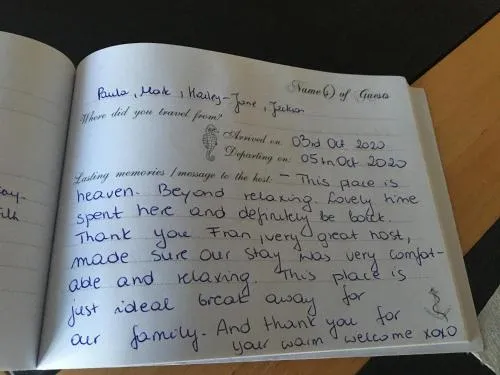 Name(s) of Guests
Paula, Mark, Hailey-Jane, Jackson
Where did you travel from?
Arrived on: 03rd Oct 2020
Departing on: 05th Oct 2020
Lasting memories / message to the host: - This place is
heaven. Beyond relaxing. Lovely time
spent here and definitely be back.
Thank you Fran, very great host,
made sure our stay was very comfort-
able and relaxing. This place is
just ideal break away for
our family. And thank you for
your warm welcome xoxo